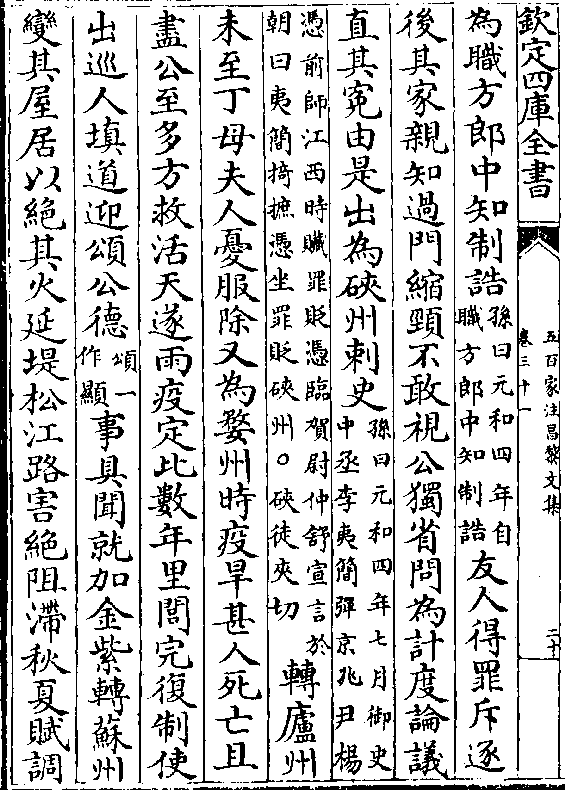 欽定四庫全書
五百家注昌黎文集
卷三十一
二十
為職方郎中知制誥孫曰元和四年自職方郎中知制誥友人得罪斥逐
後其家親知過門縮頸不敢視公獨省問為計度論議
直其寃由是出為硤州刺史孫曰元和四年七月御史中丞李夷簡彈京兆尹楊
憑前師江西時贓罪貶憑臨賀尉仲舒宣言於朝曰夷簡掎摭憑坐罪貶硤州○硤徒夾切轉廬州
未至丁母夫人憂服除又為婺州時疫旱甚人死亡且
盡公至多方救活天遂雨疫定比數年里閭完復制使
出巡人填道迎頌公德頌一作顯事具聞就加金紫轉蘇州
變其屋居以絶其火延堤松江路害絶阻滯秋夏賦調